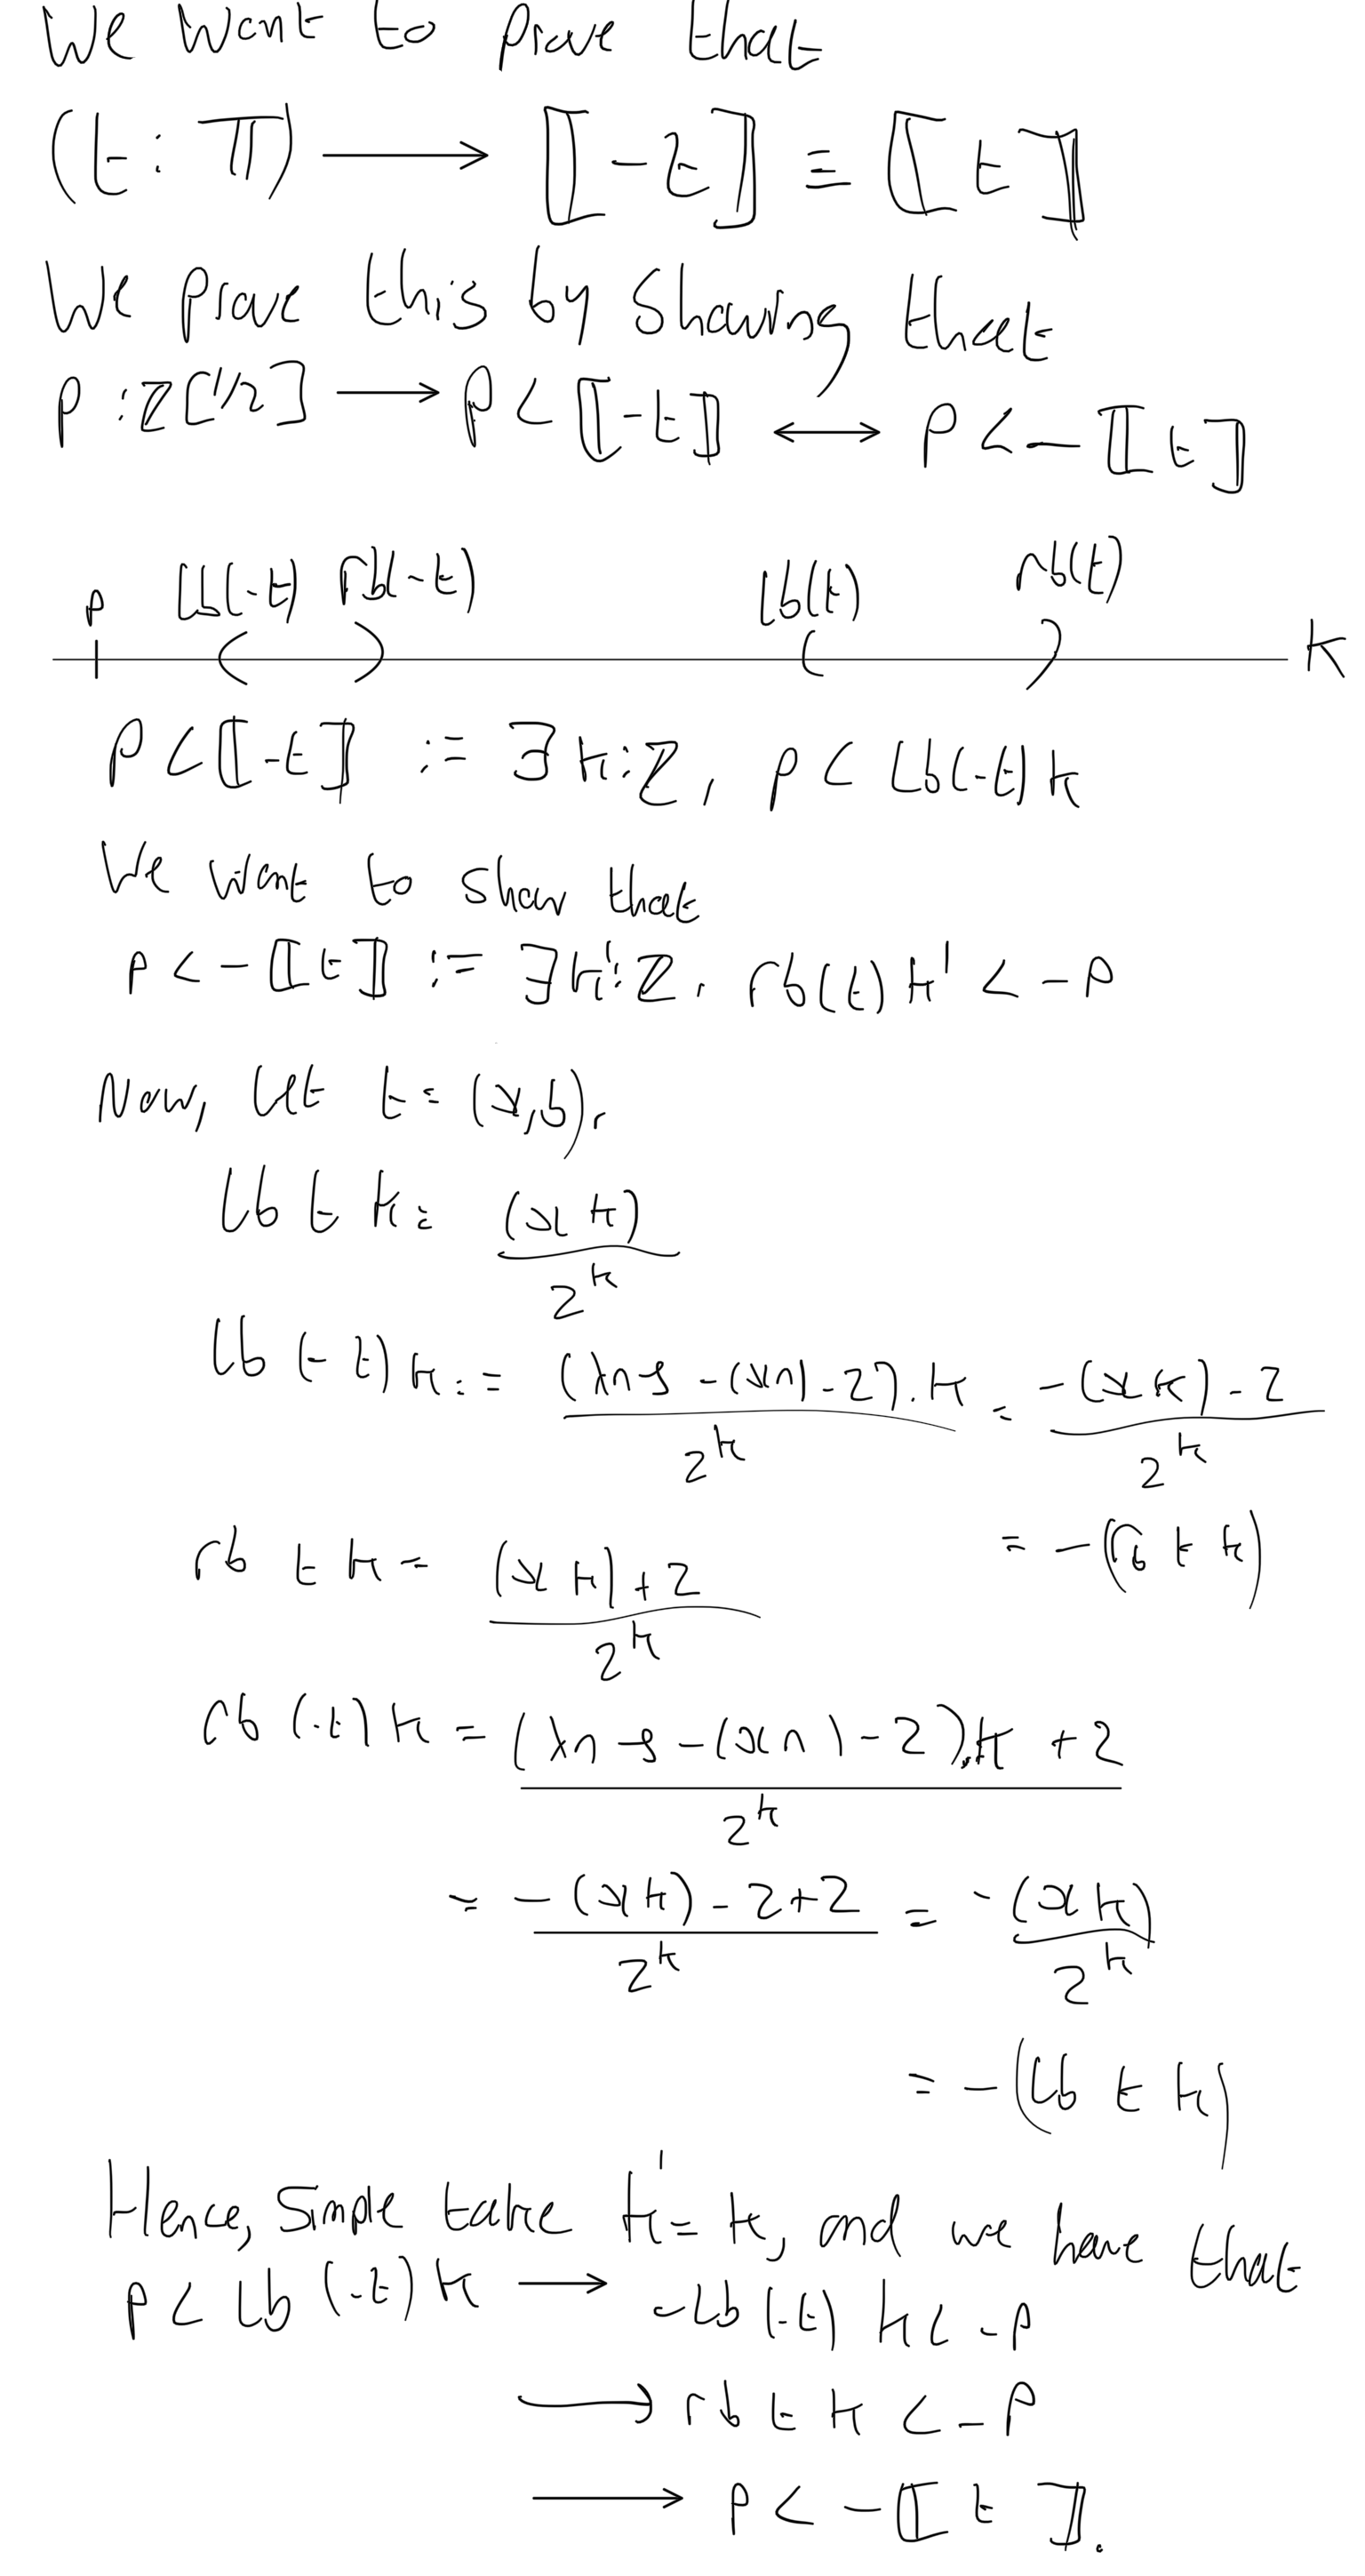 We want to prove that
(t : 𝕋) ⟶ ⟦-t⟧ ≡ ⟦t⟧
We prove this by showing that
p : Z[1/2] ⟶ p < ⟦-t⟧ ⟷ p < -⟦t⟧
p lb(-t) rb(-t) lb(t) rb(t)
( ) ( ) k
p < ⟦-t⟧ := ∃ k : Z, p < lb(-t) k
We want to show that
p < -⟦t⟧ := ∃ k' : Z, rb(t) k' < -p
Now, let t = (x, b).
lb t k = (x k) / 2^k
lb (-t) k := (λn → -(x n) - 2). k / 2^k = -(x k) - 2 / 2^k
= -(rb t k)
rb t k = (x k) + 2 / 2^k
rb (-t) k = (λn → -(x n) - 2). k + 2 / 2^k
= -(x k) - 2 + 2 / 2^k = -(x k) / 2^k
= -(lb t k)
Hence, simple take k' = k, and we have that
p < lb (-t) k ⟶ -lb (-t) k < -p
⟶ rb t k < -p
⟶ p < -⟦t⟧.